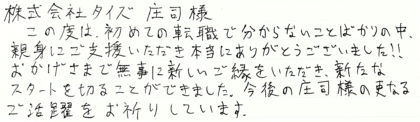 株式会社タイズ 庄司様
この度は、初めての転職で分からないことばかりの中、
親身にご支援いただき本当にありがとうございました!!
おかげさまで無事に新しいご縁をいただき、新たな
スタートを切ることができました。今後の庄司様の更なる
ご活躍をお祈りしています。